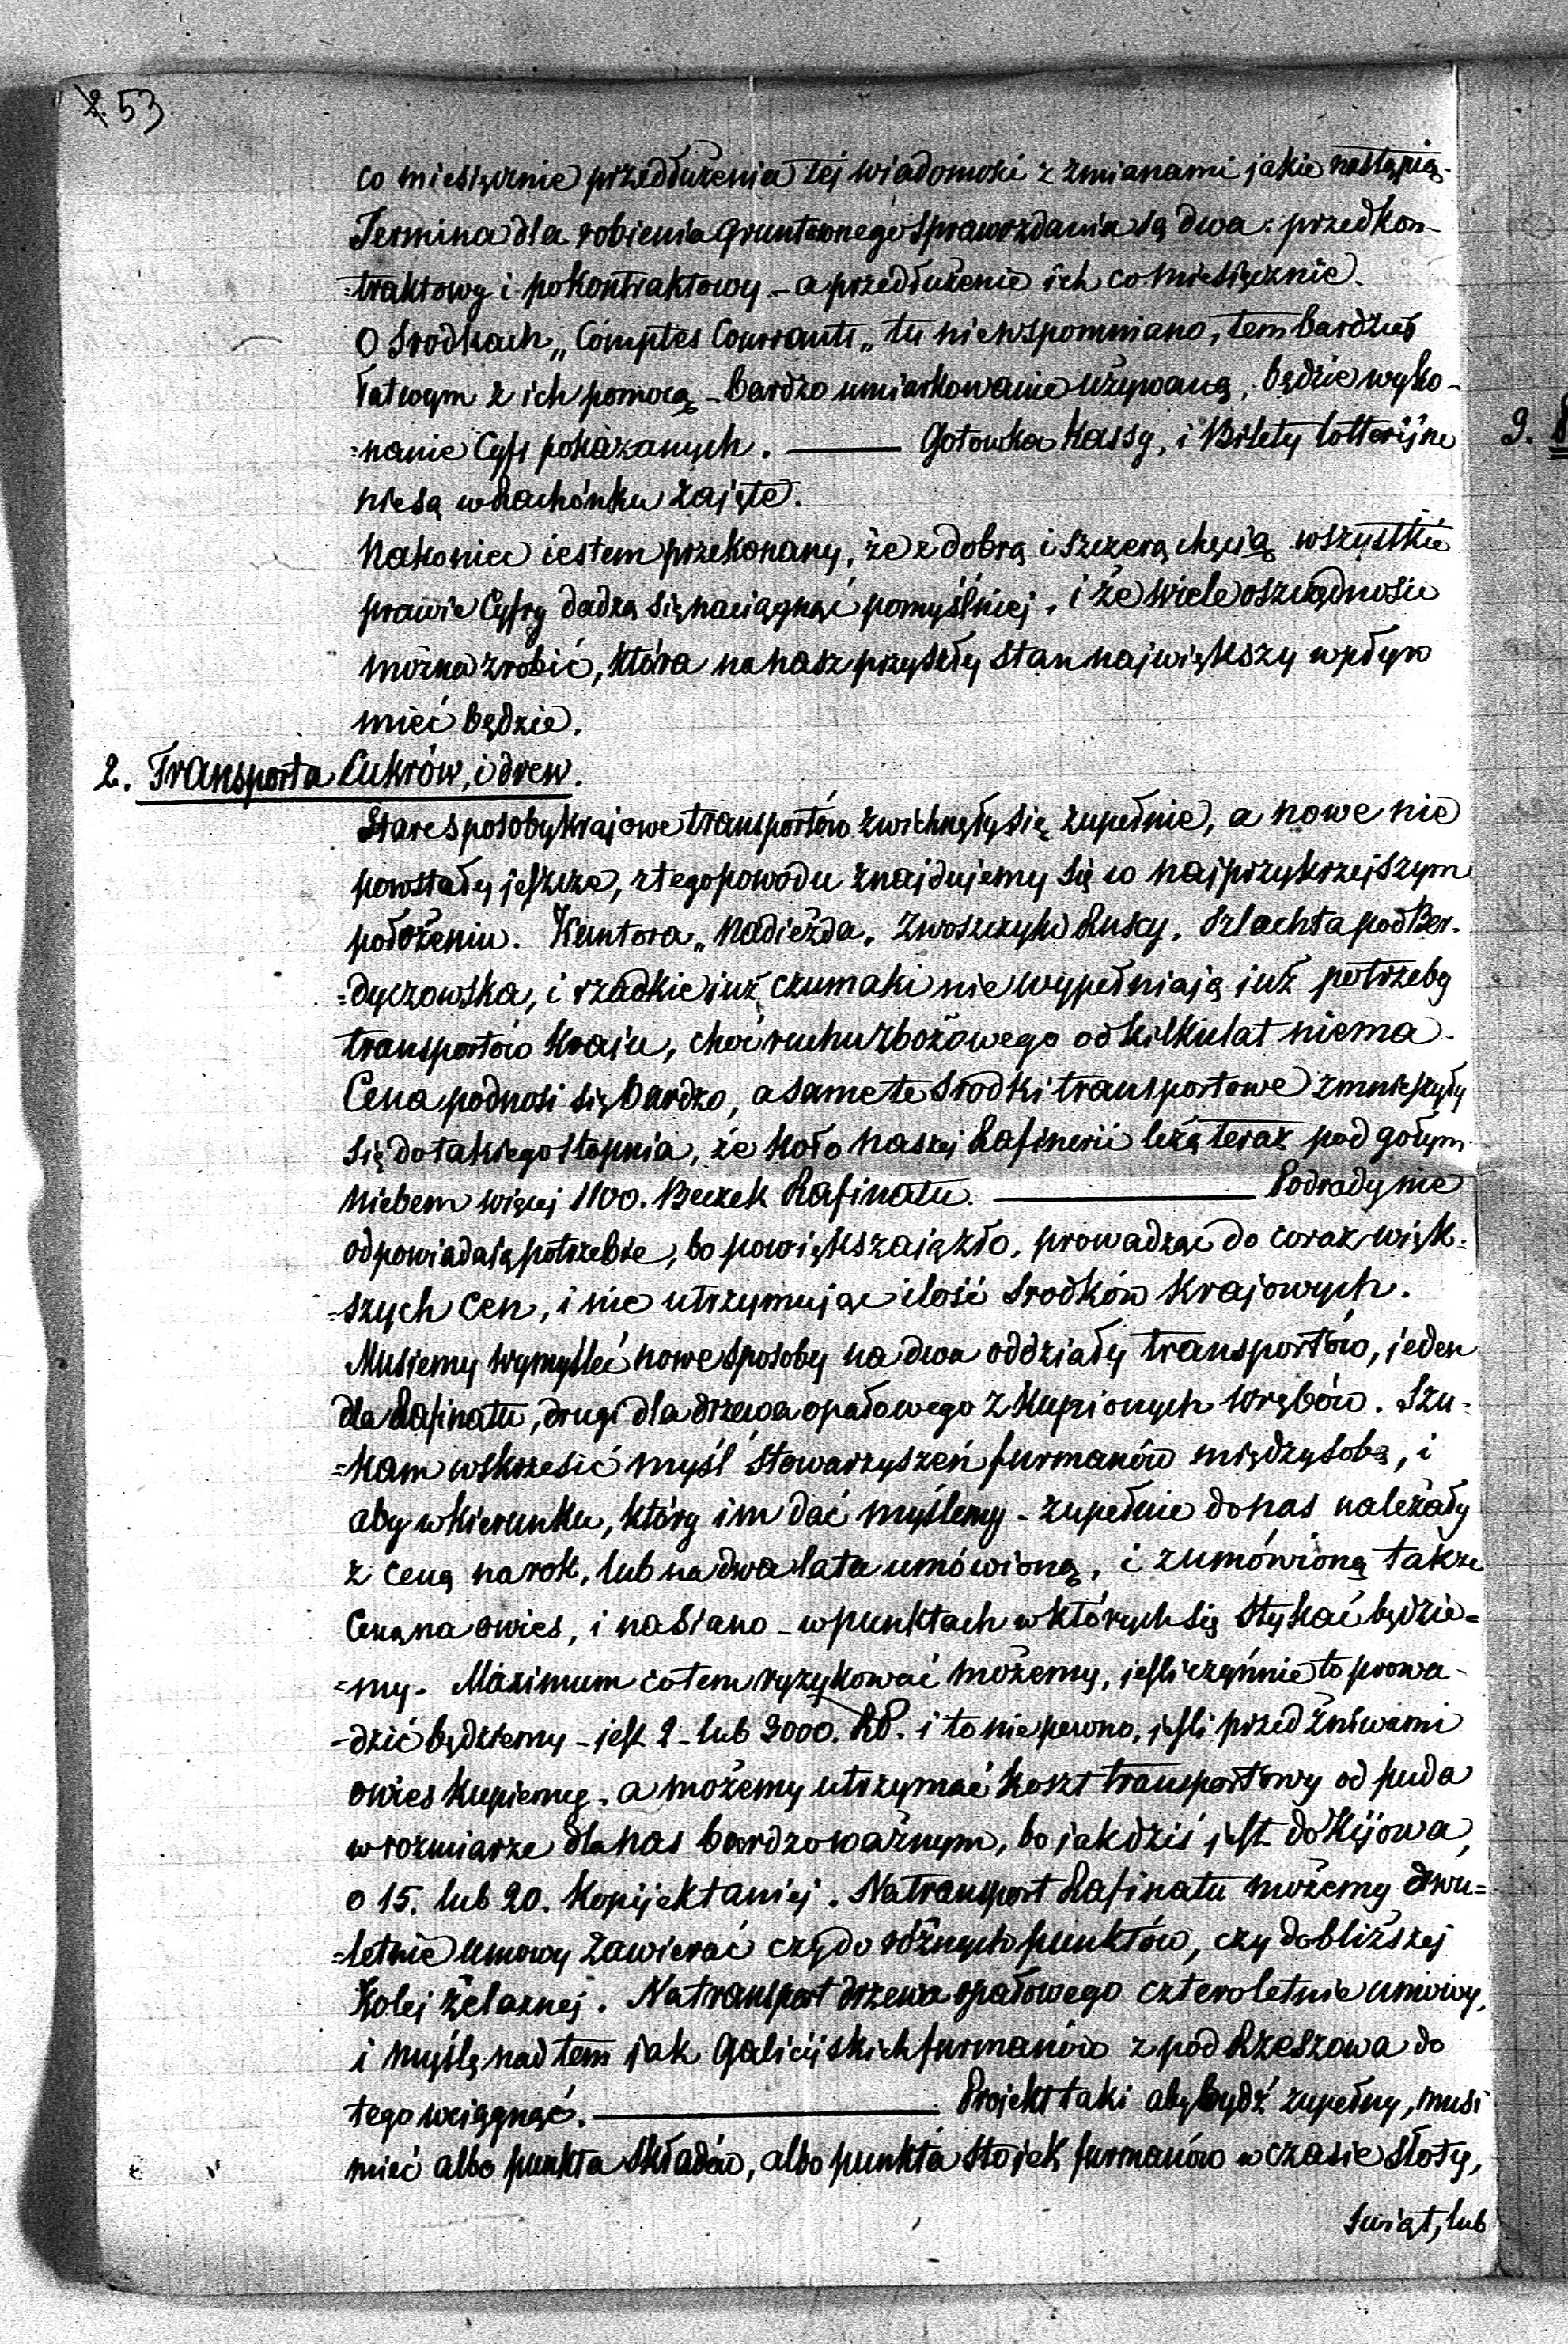 53
co miesięcznie przedłużenia tej wiadomości z zmianami jakie nastąpią.
Termina dla robienia gruntownego sprawozdania są dwa: przedkon-
=traktowy i pokontraktowy – a przedłużenie ich co miesięcznie.
O środkach „Comptes Courrants„ tu niewspomniano, tem bardziej
łatwym z ich pomocą – bardzo umiarkowanie używaną, będzie wyko-
=nanie Cyfr pokazanych. —— Gotowka Kassy, i Bilety lotteryjne
niesą w Rachónku zajęte.
Nakoniec iestem przekonany, że z dobrą i szczerą chęcią wszystkie
prawie Cyfry dadzą się naciągnąć pomyślniej, i że wiele oszczędności
można zrobić, która na nasz przyszły stan największy wpływ
mieć będzie.
2. Transporta Cukrów, i drew.
Stare sposoby krajowe transportów zwichnęły się zupełnie, a nowe nie
powstały jeszcze, z tego powodu znajdujemy się w najprzykrzejszym
położeniu. Kantora „Nadieżda, Zwoszczyki Ruscy, Szlachta pod Ber-
=dyczowska, i rzadkie już czumaki nie wypełniają już potrzeby
transportów Kraju, choć ruchu zbożowego od kilku lat niema.
Cena podnosi się bardzo, a same te środki transportowe zmniejszyły
się do takiego stopnia, że koło naszej Rafinerii leżą teraz pod gołym
niebem więcej 1100. Beczek Rafinatu. —— Podrady nie
odpowiadają potrzebie, bo powiększają zło, prowadząc do coraz więk-
=szych cen, i nie utrzymując ilość środków Krajowych.
Musiemy wymyśleć nowe sposoby na dwa oddziały transportów, jeden
dla Rafinatu, drugi dla drzewa opałowego z kupionych wrębów. Szu-
=kam wskrzesić myśl stowarzyszeń furmanów między sobą, i
aby w kierunku, który im dać myślemy – zupełnie do nas należały
z ceną na rok, lub na dwa lata umówioną, i z umówioną także
ceną na owies, i na siano – w punktach w których się stykać będzie=
=my. Maximum co tem ryzykować możemy, jeśli czynnie to prowa-
-dzić będziemy – jest 2 – lub 3000. RS. i to nie pewno, jeśli przed żniwami
owies kupiemy – a możemy utrzymać koszt transportowy od puda
w rozmiarze dla nas bardzo ważnym, bo jak dziś jest do Kijowa,
o 15. lub 20. Kopijek taniej. Na transport Rafinatu możemy dwu=
=letnie umowy zawierać czy do różnych punktów, czy do bliższej
Kolej żelaznej. Na transport drzewa opałowego czteroletnie umowy,
i myślę nad tem jak Galicijskich furmanów z pod Rzeszowa do
tego wciągnąć. —— Projekt taki aby bydź zupełny, musi
mieć albo punkta składów, albo punkta stojek furmanów w czasie słoty,
świąt, lub
3.